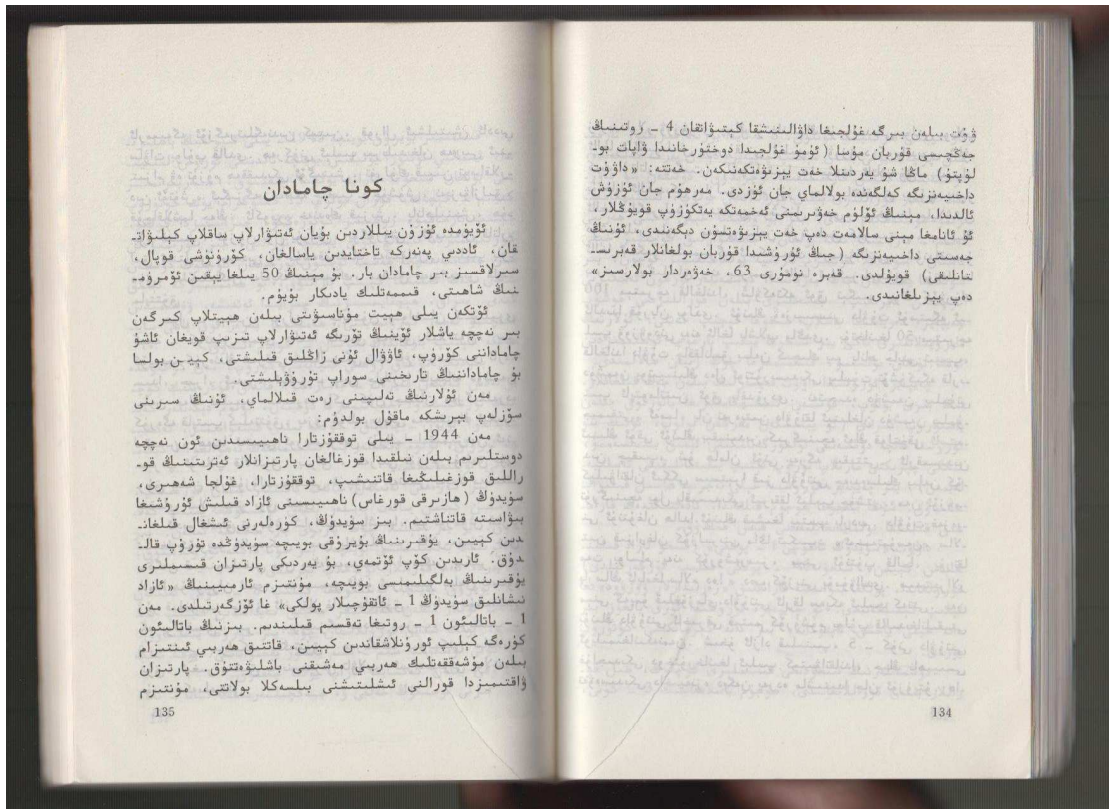 ۋۇت بىلەن بىرگە غۇلجىغا داۋالىنىشقا كېتىۋاتقان 4 ـ روتىنىڭ
جەڭچىسى قۇربان مۇسا (ئۇمۇ غۇلجىدا دوختۇرخانىدا ۋاپات بو-
لۇپتۇ) ماڭا شۇ يەردىلا خەت يېزىۋەتكەنىكەن. خەتتە: «داۋۇت
داخىيەنزىگە كەلگەندە بولالماي جان ئۈزدى. مەرھۇم جان ئۈزۈش
ئالدىدا، مېنىڭ ئۆلۈم خەۋىرىمنى ئەخمەتكە يەتكۈزۈپ قويۇڭلار،
ئۇ ئانامغا مېنى سالامەت دەپ خەت يېزىۋەتسۇن دېگەنىدى، ئۇنىڭ
جەسىتى داخىيەنزىگە (جىڭ ئۇرۇشىدا قۇربان بولغانلار قەبرىس-
تانلىقى) قويۇلدى. قەبرە نومۇرى 63. خەۋەردار بولارسىز»
دەپ يېزىلغانىدى.
134
كونا چامادان
ئۆيۈمدە ئۇزۇن يىللاردىن بۇيان ئەتىۋارلاپ ساقلاپ كېلىۋات-
قان، ئاددىي پەنەركە تاختايدىن ياسالغان، كۆرۈنۈشى قوپال،
سىرلاقسىز بىر چامادان بار. بۇ مېنىڭ 50 يىلغا يېقىن ئۆمرۈم-
نىڭ شاھىتى، قىممەتلىك يادىكار بۇيۇم.
ئۆتكەن يىلى ھېيت مۇناسىۋىتى بىلەن ھېيتلاپ كىرگەن
بىر نەچچە ياشلار ئۆينىڭ تۆرىگە ئەتىۋارلاپ تىزىپ قويغان ئاشۇ
چاماداننى كۆرۈپ، ئاۋۋال ئۇنى زاڭلىق قىلىشتى، كېيىن بولسا
بۇ چاماداننىڭ تارىخىنى سوراپ تۇرۇۋېلىشتى.
مەن ئۇلارنىڭ تەلىپىنى رەت قىلالماي، ئۇنىڭ سىرىنى
سۆزلەپ بېرىشكە ماقۇل بولدۇم:
مەن 1944 ـ يىلى توققۇزتارا ناھىيىسىدىن ئون نەچچە
دوستلىرىم بىلەن نىلقىدا قوزغالغان پارتىزانلار ئەترىتىنىڭ قو-
راللىق قوزغىلىڭىغا قاتنىشىپ، توققۇزتارا، غۇلجا شەھىرى،
سۈيدۈڭ (ھازىرقى قورغاس) ناھىيىسىنى ئازاد قىلىش ئۇرۇشىغا
بىۋاسىتە قاتناشتىم. بىز سۈيدۈڭ، كۈرەلەرنى ئىشغال قىلغان-
دىن كېيىن، يۇقىرىنىڭ بۇيرۇقى بويىچە سۈيدۈڭدە تۇرۇپ قال-
دۇق. ئارىدىن كۆپ ئۆتمەي، بۇ يەردىكى پارتىزان قىسىملىرى
يۇقىرىنىڭ بەلگىلىمىسى بويىچە، مۇنتىزىم ئارمىيىنىڭ «ئازاد
نىشانلىق سۈيدۈڭ 1 ـ ئاتقۇچىلار پولكى» غا ئۆزگەرتىلدى. مەن
1 ـ باتالىئون 1 ـ روتىغا تەقسىم قىلىندىم. بىزنىڭ باتالىئون
كۈرەگە كېلىپ ئورۇنلاشقاندىن كېيىن، قاتتىق ھەربىي ئىنتىزام
بىلەن مۇشەققەتلىك ھەربىي مەشىقنى باشلىۋەتتۇق. پارتىزان
ۋاقتىمىزدا قورالنى ئىشلىتىشنى بىلسەكلا بولاتتى، مۇنتىزىم
135